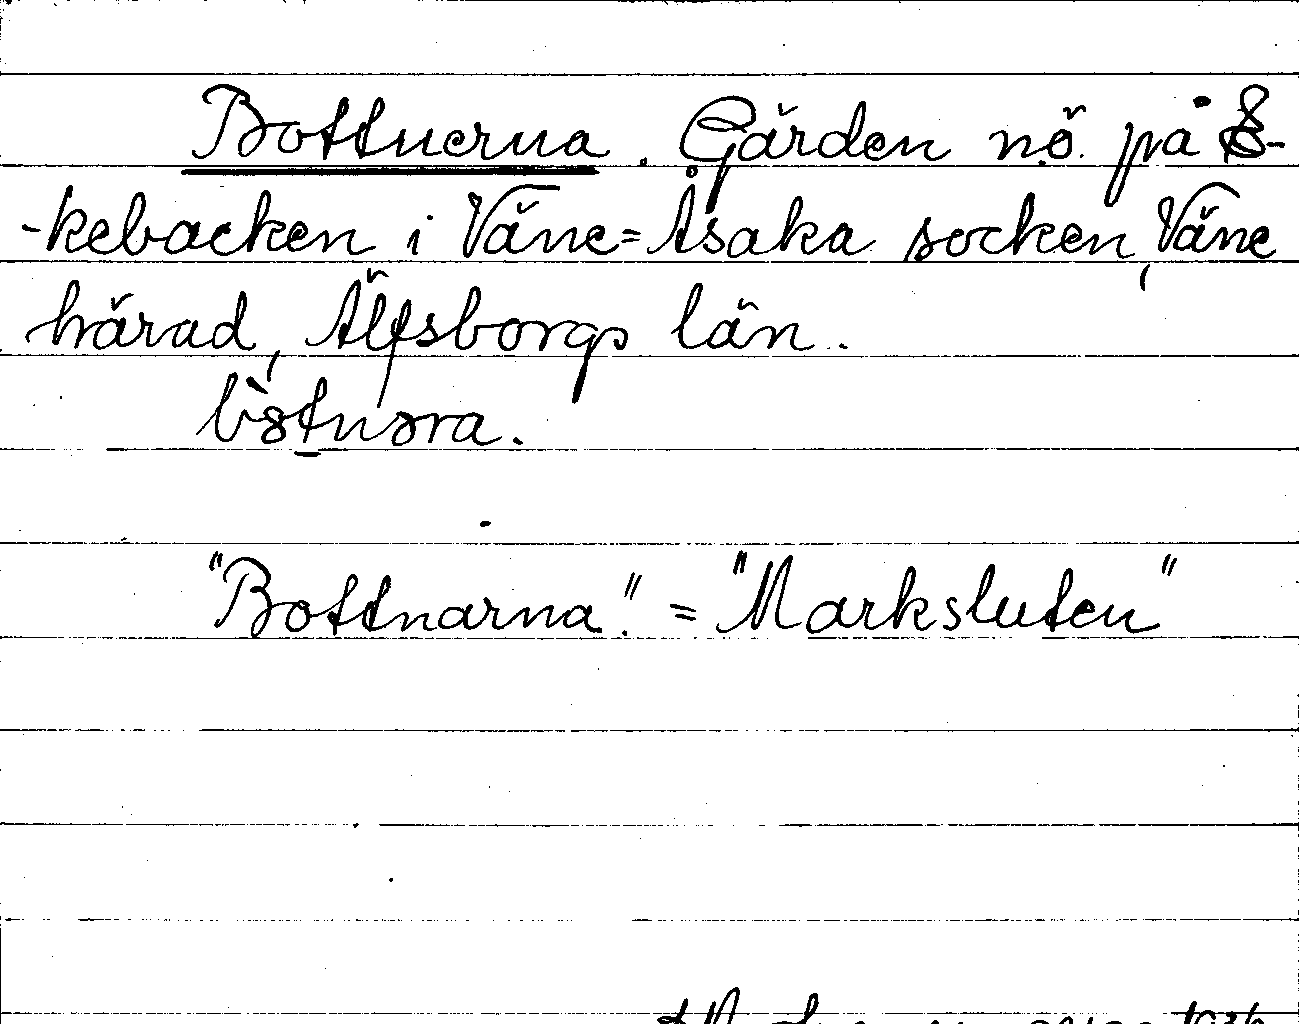 Bottnerna. Gärden nö. på E-
-kebacken i Väne=Åsaka socken, Väne
härad, Älfsborgs län.
"Bottnarna". = "Marksluten"